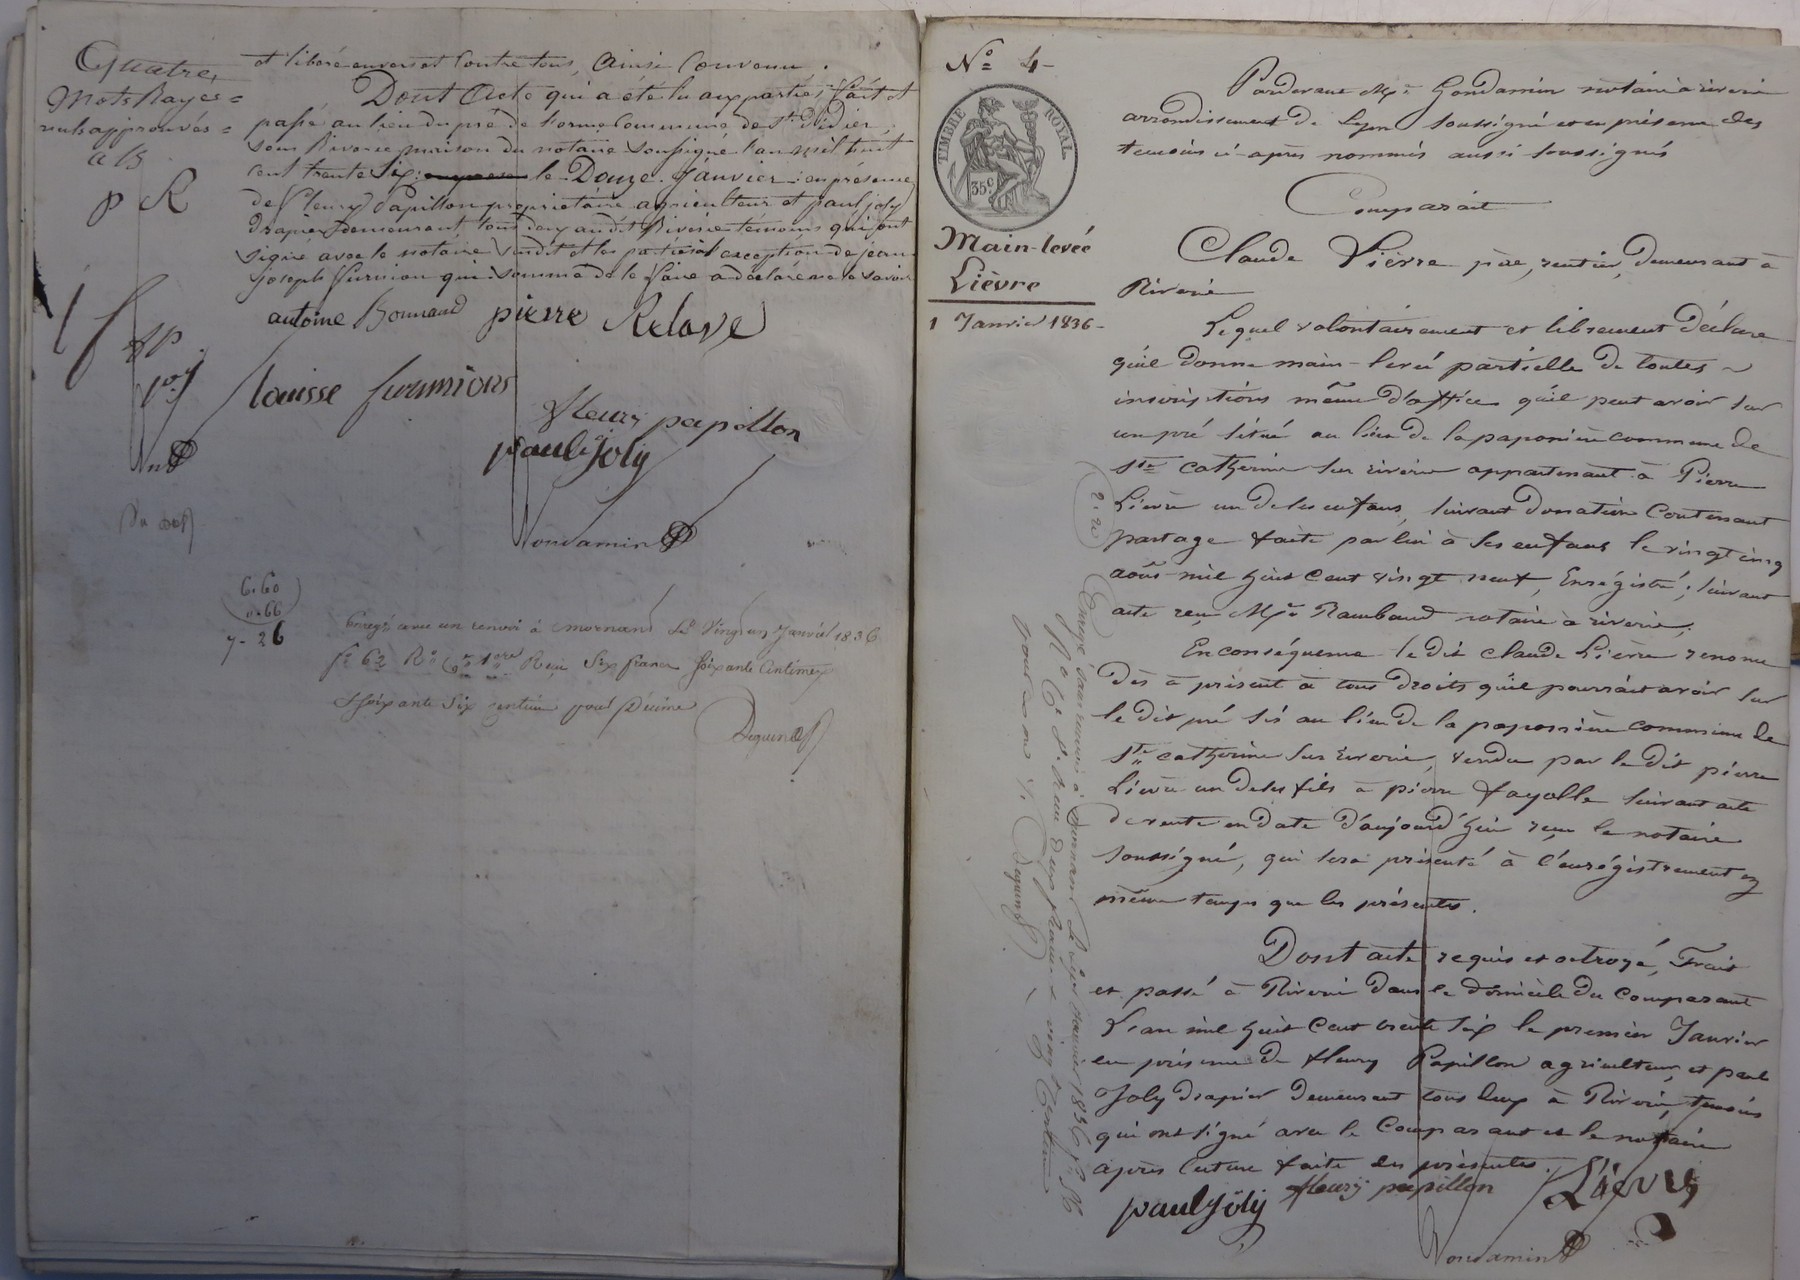 Quatre
Mots Rayés =
nuls approuvés =
a B
p R
et libéré envers et contre tous, ainsi convenu.
Dont Acte qui a été lu aux parties, fait et
passé au lieu du pré de l'orme commune de St Didier
sous Riverie maison du notaire soussigné l'an mil huit
cent trente Six le Douze Janvier en présence
de fleury Papillon propriétaire agriculteur et paul joly
Drapier demeurant tous deux audit Riverie témoins qui ont
signé avec le notaire susdit et les parties à l'exception de jean
joseph furnion qui sommé de le faire a déclaré ne le savoir
antoine Bonnard pierre Relave
louisse furnions
fleury papillon
paul joly
Gondamin
6.60
".66
7-26
Enregé avec un renvoi à Mornant le Vingt un Janvier 1836
fo 62 Ro Reçu Six francs soixante Centimes
Soixante Six centimes pour Décime
Deguin
No 4-
TIMBRE ROYAL
35c
Main-levée
Lièvre
1 Janvier 1836-
Pardevant Me Gondamin notaire à riverie
arrondissement de Lyon soussigné et en présence des
témoins ci-après nommés aussi soussignés
Comparait
Claude Lièvre père, rentier, demeurant à
Riverie
Lequel volontairement et librement Déclare
qu'il donne main-levée partielle de toutes
inscriptions même d'office qu'il peut avoir sur
un pré situé au lieu de la paponière commune de
Ste catherine sur riverie appartenant à Pierre
Lièvre un de ses enfans, suivant donation contenant
partage faite par lui à ses enfans le vingt cinq
août mil huit cent vingt neuf, Enregistré; suivant
acte reçu Me Rambaud notaire à riverie;
En conséquence le dit claude Lièvre renonce
Dès à présent à tous droits qu'il pourrait avoir sur
le dit pré sis au lieu de la paponière commune de
Ste catherine sur riverie, vendu par le dit pierre
Lièvre un de ses fils à pierre fayolle suivant acte
de vente en date d'aujourd'hui reçu le notaire
soussigné, qui sera présenté à l'enrégistrement en
même temps que les présentes.
Dont acte requis et octroyé, Fait
et passé à Riverie dans le domicile du comparant
L'an mil huit cent trente six le premier Janvier
en présence de fleury Papillon agriculteur, et paul
Joly drapier demeurant tous deux à Riverie, témoins
qui ont signé avec le comparant et le notaire
après lecture faite des présentes.
paul joly fleury papillon Lièvre
Gondamin
2.20
Enregé sans renvoi à Mornant le Janvier 1836 fo 56
Ro Reçu deux francs vingt Centimes
Deguin